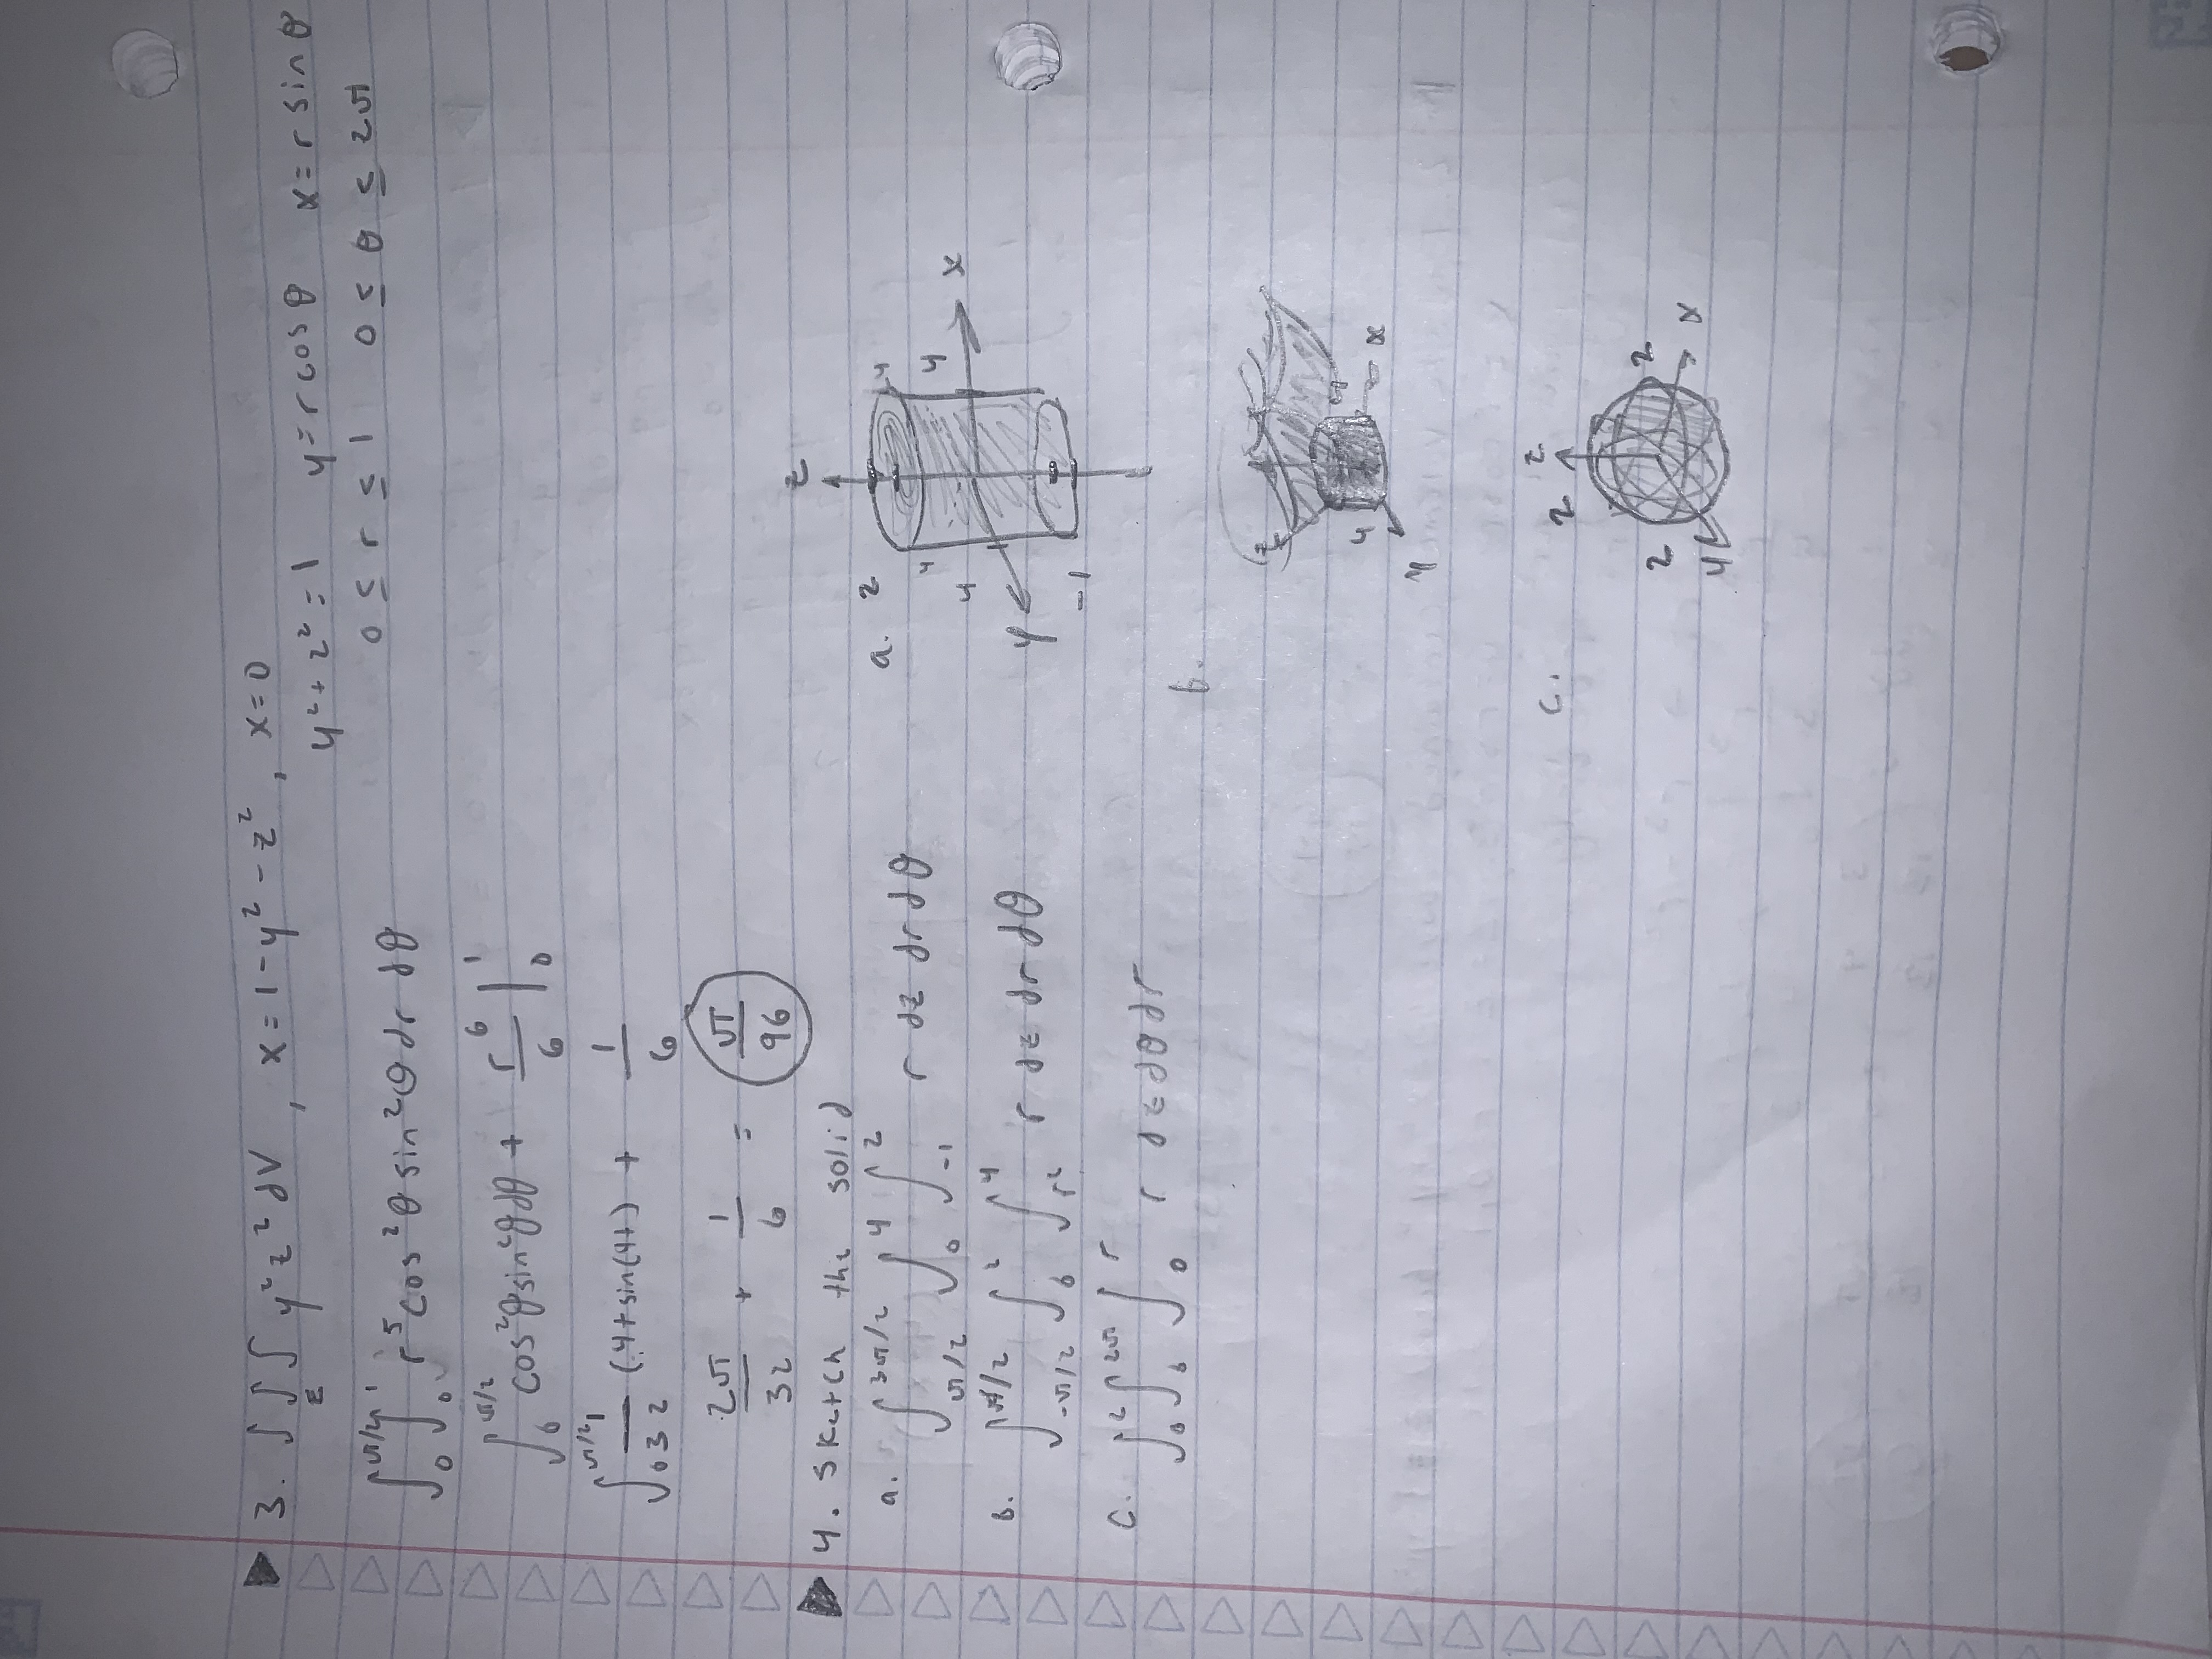 3. ∫∫∫_E y²z² dV, x = 1 - y² - z², x = 0
y² + z² = 1 y = r cos θ x = r sin θ
0 ≤ r ≤ 1 0 ≤ θ ≤ 2π
∫_0^{π/2} ∫_0^1 r⁵ cos²θ sin²θ dr dθ
∫_0^{π/2} cos²θ sin²θ dθ + r⁶/6 |_0^1
∫_0^{π/2} 1/32 (4t sin(4t) + 1/6
2π/32 + 1/6 = π/96
4. Sketch the solid
a. ∫_{π/2}^{3π/2} ∫_0^4 ∫_{-1}^2 r dz dr dθ
b. ∫_{-π/2}^{π/2} ∫_0^2 ∫_{r²}^4 r dz dr dθ
c. ∫_0^2 ∫_0^{2π} ∫_0^r r dz dθ dr
z
a. 2 4
4 4
4 x
y
-1
b.
z
4 4
x
y
c. z
2
2 2
y x